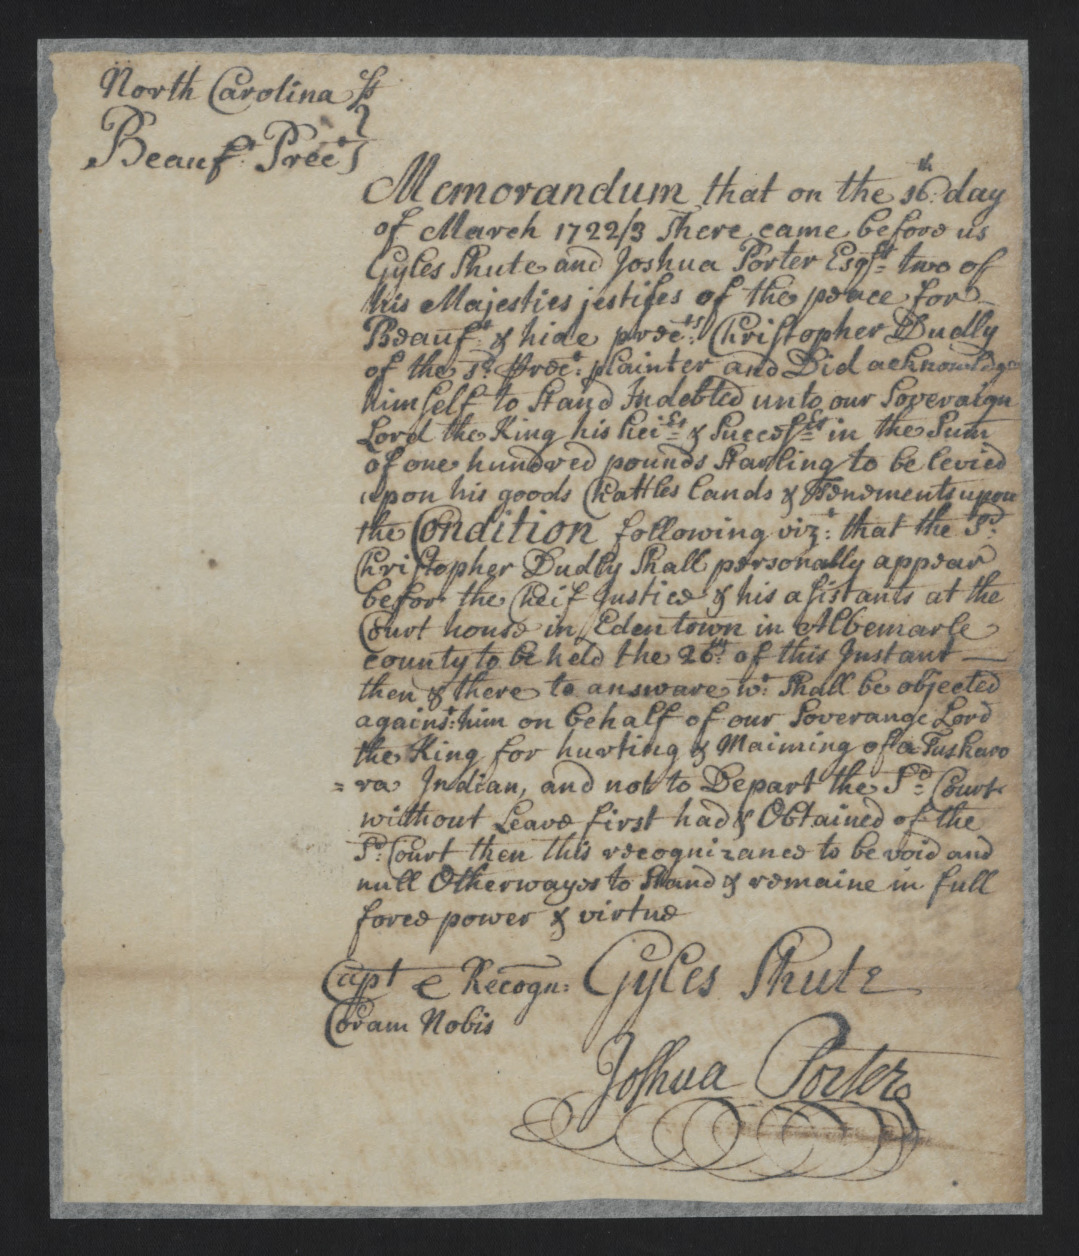 North Carolina ss
Beauf.t Prec.t
Memorandum that on the 16.th day
of March 1722/3 There came before us
Gyles Shute and Joshua Porter Esqrs two of
his Majesties jestises of the peace for
Beauf.t & hide prec.ts Christopher Dudly
of the s.d Prec.t plainter and Did acknowledge
himself to Stand Indebted unto our Soveraign
Lord the King his heirs & Success.rs in the Sum
of one hundred pounds Starling to be levied
upon his goods Chattles lands & Tenements upon
the Condition following viz.t that the S.d
Christopher Dudly Shall personally appear
befor the Cheif Justice & his asistants at the
Court house in Edentown in Albemarle
county to be held the 26.th of this Instant
then & there to answare w.t Shall be objected
agains.t him on behalf of our Soverange Lord
the King for hurting & Maiming of a Tuskaro
=ra Indian, and not to Depart the S.d Court
without Leave first had & Obtained of the
S.d Court then this recognizance to be void and
null Otherwayes to Stand & remaine in full
force power & virtue
Capt e Recogn: Gyles Shute
Coram Nobis
Joshua Porter